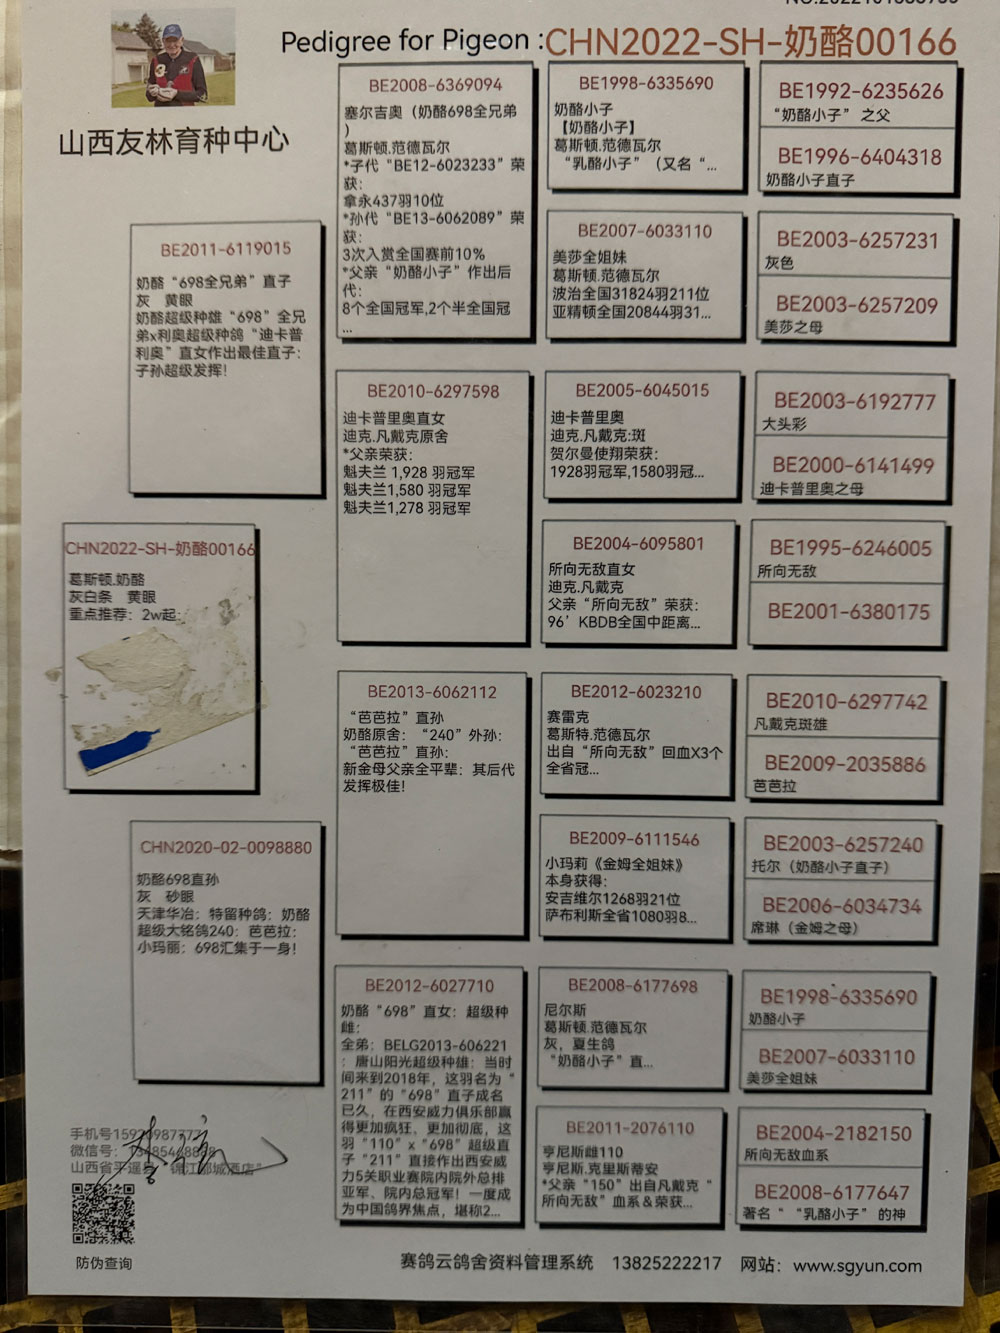 Pedigree for Pigeon :CHN2022-SH-奶酪00166
山西友林育种中心
BE2011-6119015
奶酪“698全兄弟”直子
灰 黄眼
奶酪超级种雄“698”全兄
弟x利奥超级种鸽“迪卡普
利奥”直女作出最佳直子：
子孙超级发挥！
CHN2022-SH-奶酪00166
葛斯顿.奶酪
灰白条 黄眼
重点推荐：2w起：
CHN2020-02-0098880
奶酪698直孙
灰 砂眼
天津华冶：特留种鸽：奶酪
超级大铭鸽240：芭芭拉：
小玛丽：698汇集于一身！
BE2008-6369094
塞尔吉奥（奶酪698全兄弟
）
葛斯顿.范德瓦尔
*子代“BE12-6023233”荣
获：
拿永437羽10位
*孙代“BE13-6062089”荣
获：
3次入赏全国赛前10%
*父亲“奶酪小子”作出后
代：
8个全国冠军,2个半全国冠
...
BE2010-6297598
迪卡普里奥直女
迪克.凡戴克原舍
*父亲荣获：
魁夫兰 1,928 羽冠军
魁夫兰1,580 羽冠军
魁夫兰1,278 羽冠军
BE2013-6062112
“芭芭拉”直孙
奶酪原舍：“240”外孙：
“芭芭拉”直孙：
新金母父亲全平辈：其后代
发挥极佳！
BE2012-6027710
奶酪“698”直女：超级种
雌：
全弟：BELG2013-606221
：唐山阳光超级种雄：当时
间来到2018年，这羽名为“
211”的“698”直子成名
已久，在西安威力俱乐部赢
得更加疯狂、更加彻底，这
羽“110”x“698”超级直
子“211”直接作出西安威
力5关职业赛院内院外总排
亚军、院内总冠军！一度成
为中国鸽界焦点，堪称2...
BE1998-6335690
奶酪小子
【奶酪小子】
葛斯顿.范德瓦尔
“乳酪小子”（又名“...
BE2007-6033110
美莎全姐妹
葛斯顿.范德瓦尔
波治全国31824羽211位
亚精顿全国20844羽31...
BE2005-6045015
迪卡普里奥
迪克.凡戴克:斑
贺尔曼使翔荣获：
1928羽冠军,1580羽冠...
BE2004-6095801
所向无敌直女
迪克.凡戴克
父亲“所向无敌”荣获：
96’KBDB全国中距离...
BE2012-6023210
赛雷克
葛斯特.范德瓦尔
出自“所向无敌”回血X3个
全省冠...
BE2009-6111546
小玛莉《金姆全姐妹》
本身获得：
安吉维尔1268羽21位
萨布利斯全省1080羽8...
BE2008-6177698
尼尔斯
葛斯顿.范德瓦尔
灰，夏生鸽
“奶酪小子”直...
BE2011-2076110
亨尼斯雌110
亨尼斯.克里斯蒂安
*父亲“150”出自凡戴克“
所向无敌”血系＆荣获...
BE1992-6235626
“奶酪小子”之父
BE1996-6404318
奶酪小子直子
BE2003-6257231
灰色
BE2003-6257209
美莎之母
BE2003-6192777
大头彩
BE2000-6141499
迪卡普里奥之母
BE1995-6246005
所向无敌
BE2001-6380175
BE2010-6297742
凡戴克斑雄
BE2009-2035886
芭芭拉
BE2003-6257240
托尔（奶酪小子直子）
BE2006-6034734
席琳（金姆之母）
BE1998-6335690
奶酪小子
BE2007-6033110
美莎全姐妹
BE2004-2182150
所向无敌血系
BE2008-6177647
著名““乳酪小子”的神
手机号
微信号：
山西省平遥县
防伪查询
赛鸽云鸽舍资料管理系统 13825222217 网站：www.sgyun.com